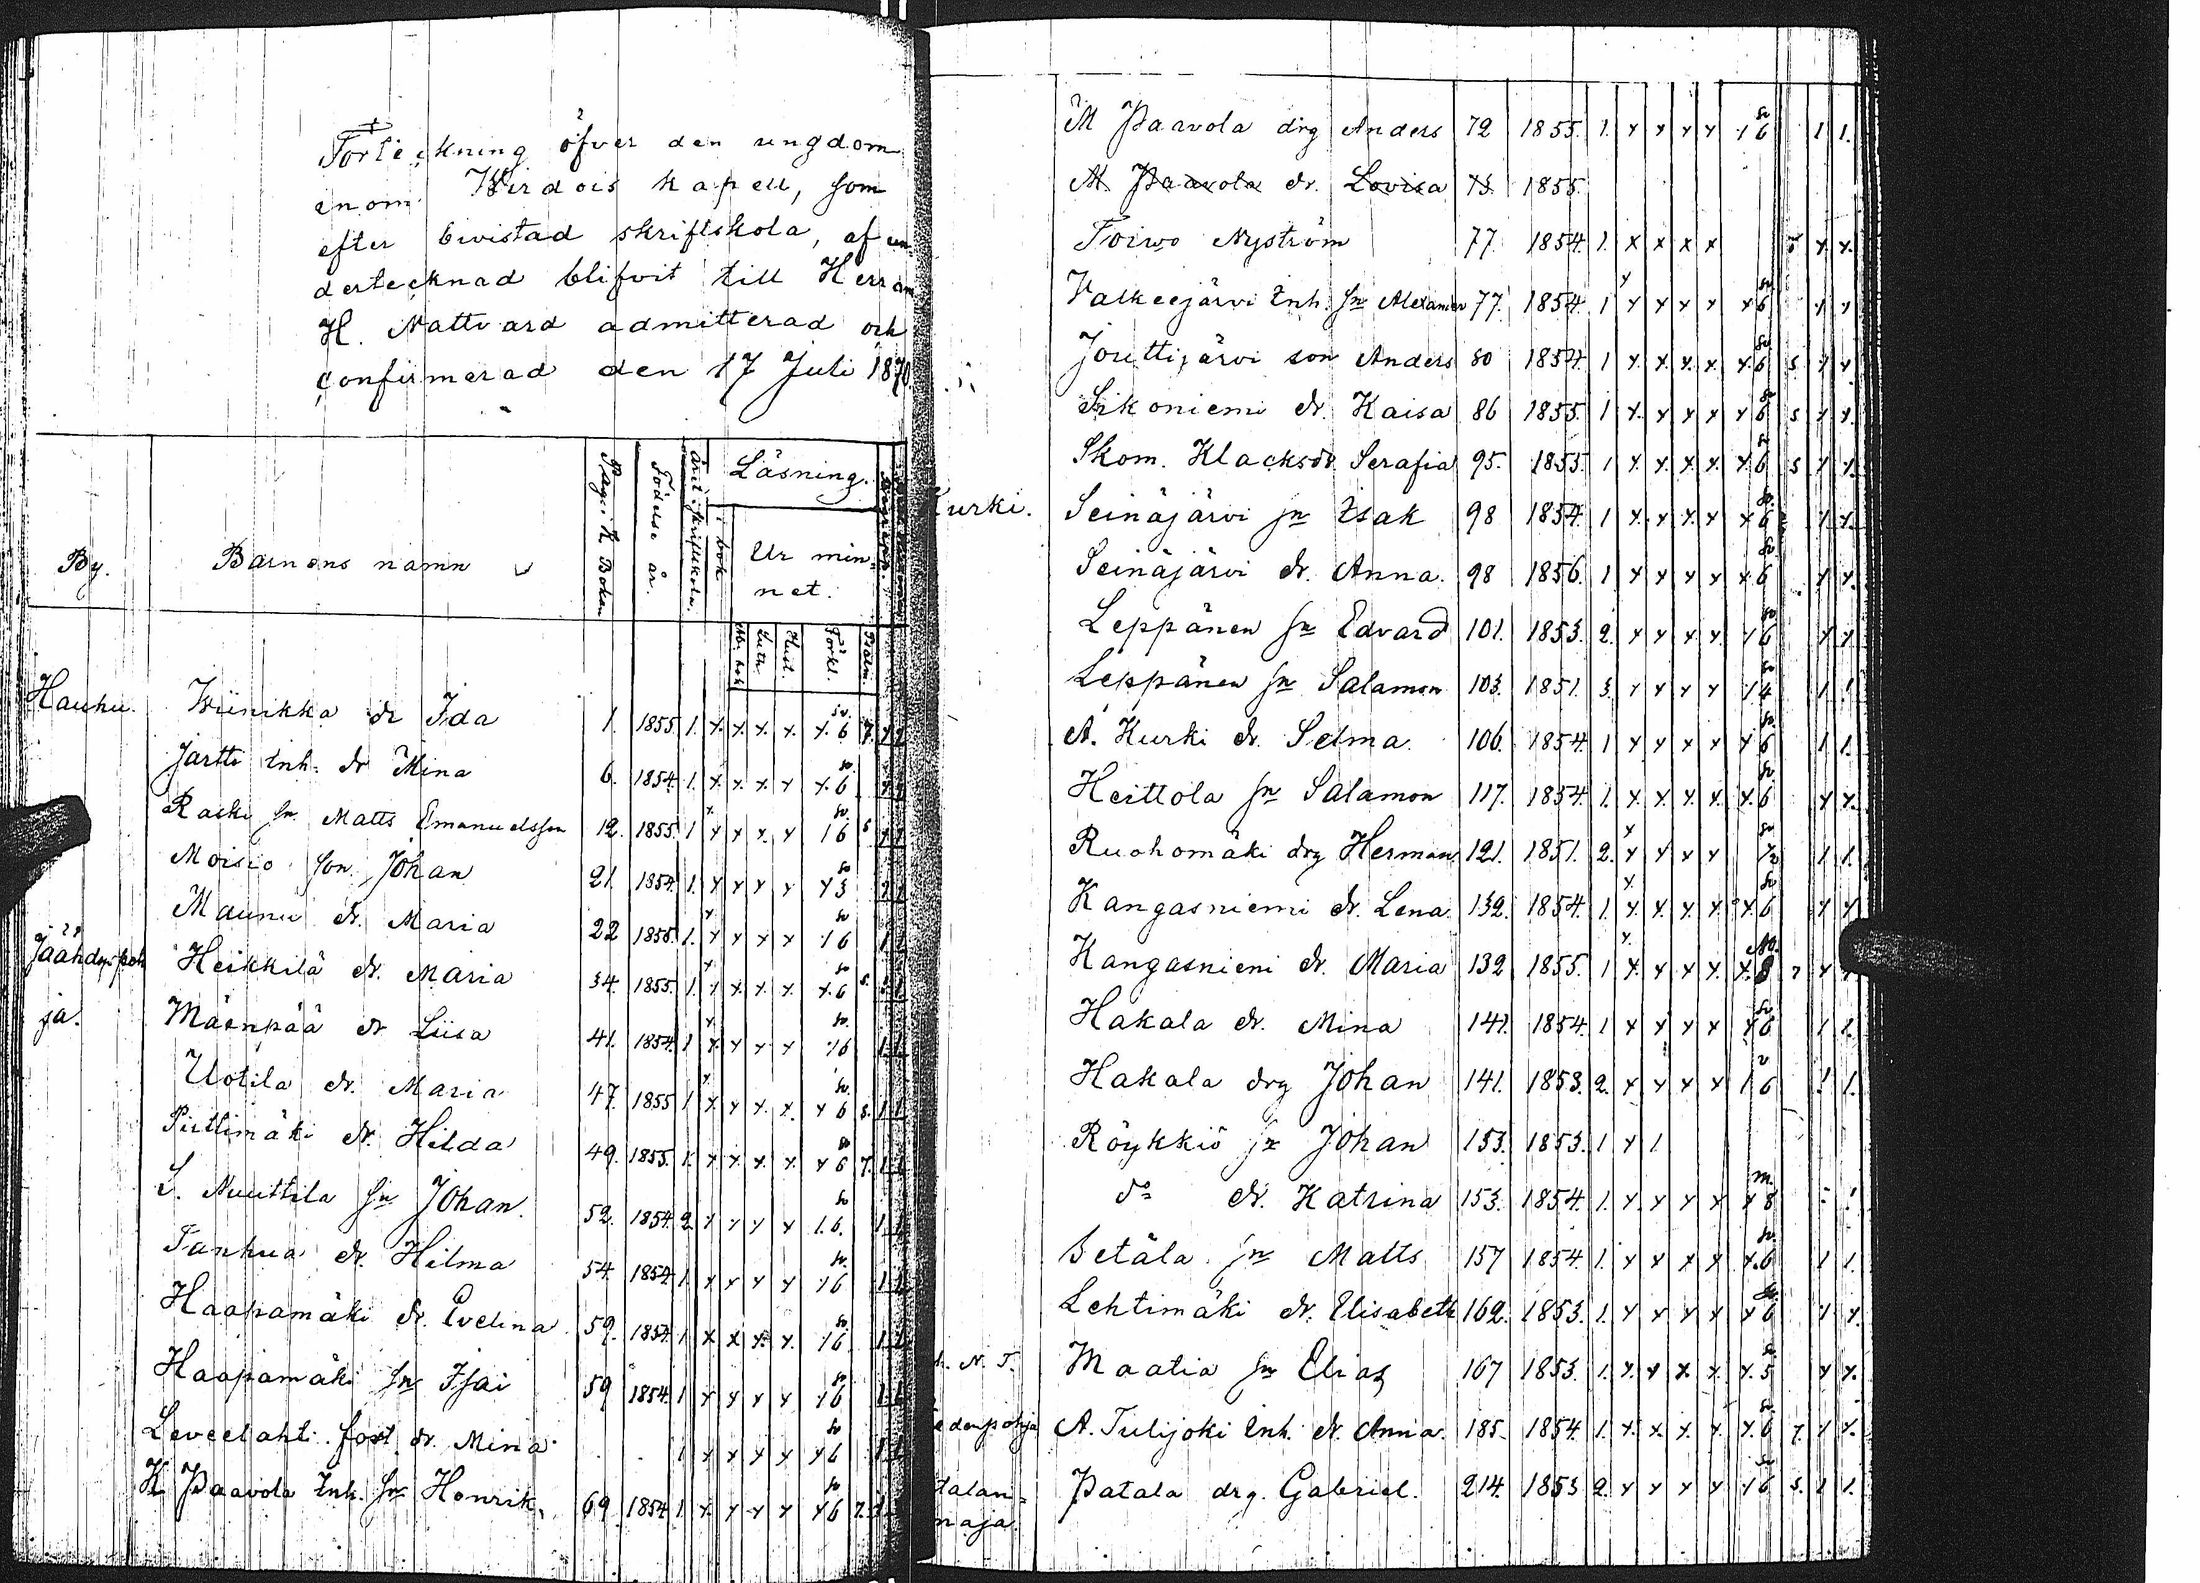 Förteckning öfver den ungdom
inom Wirdois kapell, som
efter bivistad skriftskola, af un-
dertecknad blifvit till Herrans
H. Nattvard admitterad och
confirmerad den 17 Juli 1870.
By. Barnens namn Pag. i K. Boken Födelse år. Läsning.
i bok Ur min-
net.
Luth. Hust. Förkl. Psalm.
Hauhu. Wiinikka dr Ida 1. 1855. 1. x. x. x. x. x. 6 7.
Jartti Inh. dr Mina 6. 1854. 1. x. x. x. x x. 6
Raski sn. Matts Emanuelsson 12. 1855. 1 x x x. x 1 6 5
Moisio son. Johan 21. 1854. 1. x x x x x 3
Maunu dr. Maria 22 1856. 1. x x x x 1 6
Jäähdyspoh- Heikkilä dr. Maria 34. 1855. 1. x x. x. x. x. 6 5.
ja. Mäenpää dr Liisa 41. 1854. 1 x. x x. x 1 6
Uotila dr. Maria 47. 1855 1. x x x. x. x 6 5.
Püttimäki dr. Hilda 49. 1855. 1. x. x. x. x. x 6 7.
S. Nuuttila sn Johan. 52. 1854. 2. x x x x 1. 6.
Tanhua dr. Hilma 54. 1854 1. x x x x 1 6
Haapamäki dr. Evelina 59. 1854. 1 x x. x. x. 1 6
Haapamäki sn Isai 59 1854. 1 x x x x x 6
Leveelahti. fost. dr. Mina 1 x x x x x 6
K. Paavola Inh. sn Henrik. 69. 1854. 1. x. x x x x 6 7.
M Paavola drg Anders 72 1855. 1. x x x x x 6 1 1.
M. Paavola dr. Lovisa 73. 1855.
Toivo Nyström 77. 1854. 1. x x x x 5 x x.
Valkeejärvi Inh. sn Alexander 77. 1854. 1 x x x x x 6 x x
Jouttijärvi son Anders 80 1854. 1 x x. x. x. x. 6 5. x x
Sikoniemi dr. Kaisa 86 1855. 1 x. x x x x 6 5 x x.
Skom. Klacks dr Serafia 95. 1855. 1 x. x. x. x. x 6 5 x x.
Kurki. Seinäjärvi sn Isak 98 1854. 1 x. x x. x x 6 1 x.
Seinäjärvi dr. Anna. 98 1856. 1 x x x x x 6 x x.
Leppänen sn Edvard 101. 1853. 2. x x x x. 1 6 x x.
Leppänen sn Salamon 103. 1851. 3. x x x x 1 4 1 1.
A. Kurki dr. Selma. 106. 1854. 1 x x x x x 6 1 1.
Heittola sn Salamon 117. 1854. 1. x. x. x. x. x. 6 x x.
Ruohomäki drg Herman 121. 1851. 2. x x x x 1 1.
Kangasniemi dr. Lena. 132. 1854. 1. x. x. x. x. x. 6 x x
Kangasniemi dr. Maria 132 1855. 1 x. x x x. x. 8 7 x
Hakala dr. Mina 141. 1854. 1 x x x x x 6 1 1.
Hakala drg Johan 141. 1853. 2. x x x x 1 6 1 1.
Röykkiö sn Johan 153. 1853. 1 x 1
do dr. Katrina 153. 1854. 1. x x x x x 8
Setälä sn Matts 157 1854. 1. x x x x x. 6 1 1.
Lehtimäki dr. Elisabeth 162. 1853. 1. x x x x x 6 1 x.
h. N. T. Maatia sn Elias 167 1853. 1. x. x x x. x. 5 x x.
edenpohja A. Tulijoki Inh. dr. Anna. 185. 1854. 1. x. x. x. x x. 6 7. x x.
talan- Patala drg. Gabriel. 214. 1853 2. x x x x 1 6 5. 1 1.
maja.